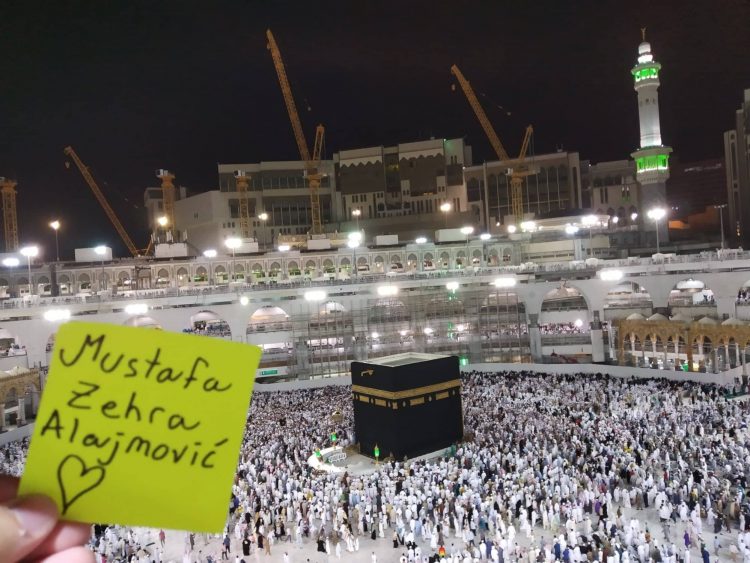 Mustafa
Zehra
Alajmović